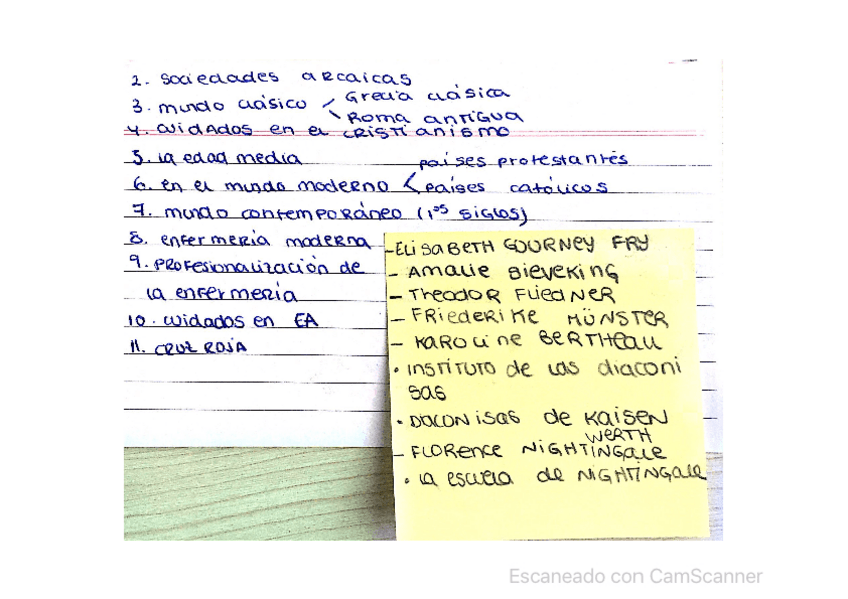 2. sociedades arcaicas
3. mundo clásico
Grecia clásica
Roma antigua
4. cuidados en el cristianismo
5. la edad media
6. en el mundo moderno
países protestantes
países católicos
7. mundo contemporáneo (1ºs siglos)
8. enfermería moderna
9. PROFESIONALIZACIÓN de
la enfermería
10. cuidados en EA
11. CRUZ ROJA
- ELISABETH GOURNEY FRY
- AMALIE SIEVEKING
- THEODOR FLIEDNER
- FRIEDERIKE MÜNSTER
- KAROLINE BERTHEAU
• INSTITUTO de las diaconi
sas
• DIACONISAS de KAISEN
WERTH
- FLORENCE NIGHTINGALE
• la escuela de NIGHTINGALE
Escaneado con CamScanner